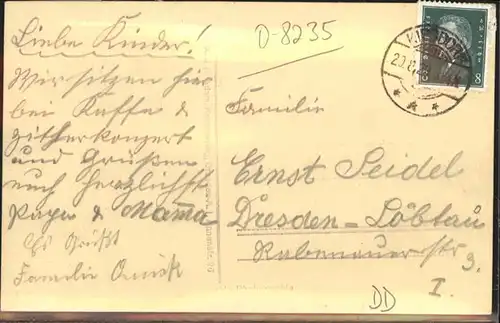 D-8235
Liebe Kinder!
Wir sitzen hier
bei Kaffe &
Zitherkonzert
und Grüßen
euch herzlichst
Papa & Mama
Es Grüßt
Familie
Familie
Ernst Seidel
Dresden-Löbtau
Rabenauerstr
9.
I.
DD
8